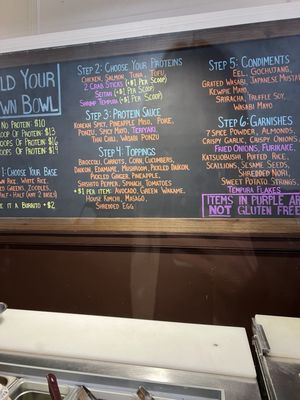 LD YOUR
WN BOWL
NO PROTEIN: $10
SCOOP OF PROTEIN: $13
OOPS OF PROTEIN: $16
OOPS OF PROTEIN: $19
1: CHOOSE YOUR BASE
WN RICE, WHITE RICE,
XED GREENS, ZOODLES,
HALF + HALF (ANY 2 BASES)
E IT A BURRITO +$2
STEP 2: CHOOSE YOUR PROTEINS
CHICKEN, SALMON, TUNA, TOFU,
2 CRAB STICKS (+$1 PER SCOOP)
SEITAN (+$1 PER SCOOP)
SHRIMP TEMPURA (+$1 PER SCOOP)
STEP 3: PROTEIN SAUCE
KOREAN SPICE, PINEAPPLE MISO, POKE,
PONZU, SPICY MAYO, TERIYAKI,
THAI CHILI, WASABI PONZU
STEP 4: TOPPINGS
BROCCOLI, CARROTS, CORN, CUCUMBERS,
DAIKON, EDAMAME, MUSHROOM, PICKLED DAIKON,
PICKLED GINGER, PINEAPPLE,
SHISHITO PEPPER, SPINACH, TOMATOES
+$1 PER ITEM: AVOCADO, GREEN WAKAME,
HOUSE KIMCHI, MASAGO,
SHREDDED EGG
STEP 5: CONDIMENTS
EEL, GOCHUJANG,
GRATED WASABI, JAPANESE MUSTA
KEWPIE MAYO
SRIRACHA, TRUFFLE SOY
WASABI MAYO
STEP 6: GARNISHES
7 SPICE POWDER, ALMONDS,
CRISPY GARLIC, CRISPY ONIONS,
FRIED ONIONS, FURIKAKE,
KATSUOBUSHI, PUFFED RICE,
SCALLIONS, SESAME SEEDS,
SHREDDED NORI,
SWEET POTATO STRINGS,
TEMPURA FLAKES
ITEMS IN PURPLE AR
NOT GLUTEN FREE